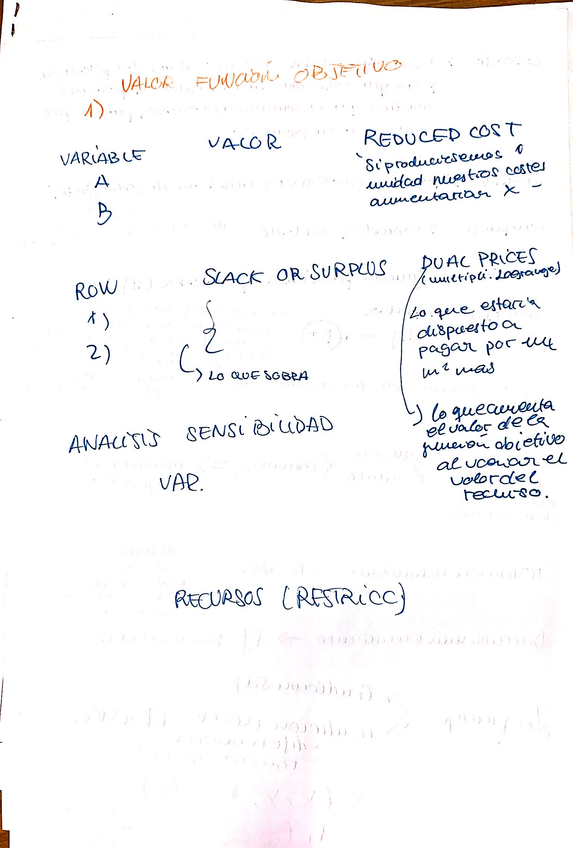 VALOR FUNCIÓN OBJETIVO
1)
VARIABLE VALOR REDUCED COST
A
B
"Si produciésemos 1
unidad nuestros costes
aumentarían X –
ROW SLACK OR SURPLUS DUAL PRICES
(multipli. Lagrange)
1)
2)
LO QUE SOBRA
Lo que estaría
dispuesto a
pagar por un
m² más
lo que aumenta
el valor de la
función objetivo
al variar el
valor del
recurso.
ANALISIS SENSIBILIDAD
VAR.
RECURSOS (RESTRICC)